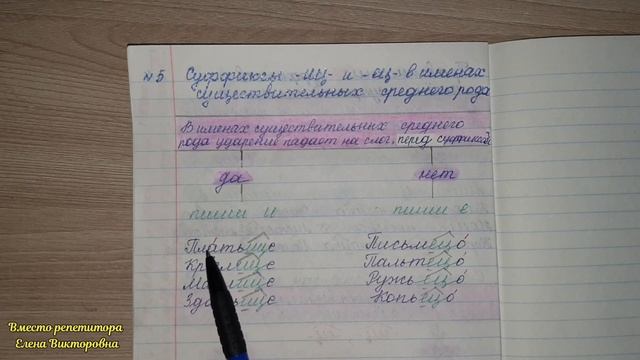 №5 Суффиксы -иц- и -ец- в именах
существительных среднего рода
В именах существительных среднего
рода ударение падает на слог, перед суффиксом
да нет
пиши и пиши е
Платьице Письмецо́
Пальтецо́
Ружьецо́
Копьецо́
Вместо репетитора
Елена Викторовна